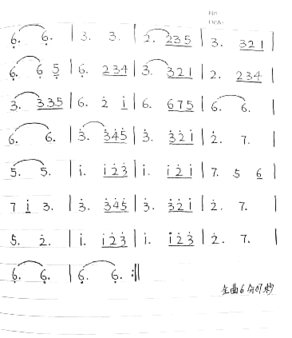 6. 6. | 3. 3. | 2. 235 | 3. 321
6. 6 5 | 6. 234 | 3. 321 | 2. 234
3. 335 | 6. 2 i | 6. 675 | 6. 6.
6. 6. | 3. 345 | 3. 321 | 2. 7.
5. 5. | i. i23 | i. i2i | 7. 5 6
7 i 3. | 3. 345 | 3. 321 | 2. 7.
5. 2. | i. i23 | i. i23 | 2. 7.
6. 6. | 6. 6. :||